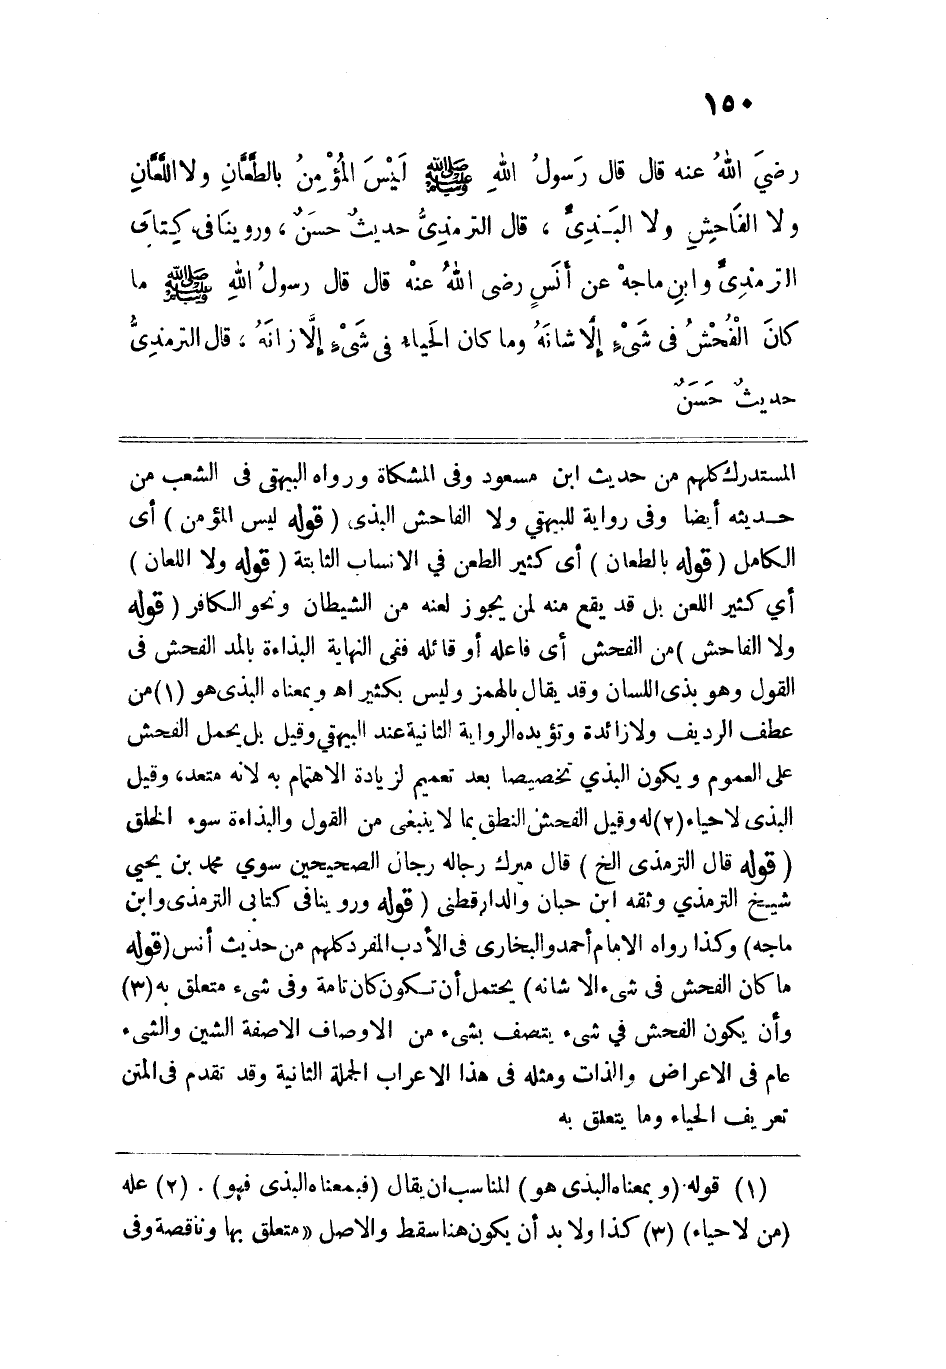 ١٥٠
رضيَ اللهُ عنه قال قال رَسولُ اللهِ ﷺ لَيْسَ المُؤْمِنُ بالطَّعَّانِ ولا اللَّعَّانِ
ولا الفَاحِشِ ولا البَـذِىِّ ، قال الترمذىُّ حديثٌ حسَنٌ ، وروينا فى كِتابَىِ
الترمذِىِّ وابنِ ماجهْ عن أنَسٍ رضى اللهُ عنْه قال قال رسولُ اللهِ ﷺ ما
كانَ الْفُحْشُ فى شَىْءٍ إلَّا شانَهُ وما كان الحَياء فى شَىْءٍ إلَّا زانَهُ ، قال الترمذىُّ
حديثٌ حَسَنٌ
المستدرك كلهم من حديث ابن مسعود وفى المشكاة ورواه البيهقى فى الشعب من
حـديثه أيضا وفى رواية للبيهقي ولا الفاحش البذى ( قوله ليس المؤمن ) أى
الكامل ( قوله بالطعان ) أى كثير الطعن في الانساب الثابتة ( قوله ولا اللعان )
أي كثير اللعن بل قد يقع منه لمن يجوز لعنه من الشيطان ونحو الكافر ( قوله
ولا الفاحش ) من الفحش أى فاعله أو قائله ففى النهاية البذاءة بالمد الفحش فى
القول وهو بذى اللسان وقد يقال بالهمز وليس بكثير اه وبمعناه البذى هو (١) من
عطف الرديف ولا زائدة وتؤيده الرواية الثانية عند البيهقي وقيل بل يحمل الفحش
على العموم ويكون البذي تخصيصا بعد تعميم لزيادة الاهتمام به لانه متعد، وقيل
البذى لا حياء (٢) له وقيل الفحش النطق بما لا ينبغى من القول والبذاءة سوء الخلق
( قوله قال الترمذى الخ ) قال ميرك رجاله رجال الصحيحين سوي محمد بن يحيي
شيخ الترمذي وثقه ابن حبان والدارقطنى ( قوله وروينا فى كتابى الترمذى وابن
ماجه) وكذا رواه الامام أحمد والبخارى فى الأدب المفرد كلهم من حديث أنس (قوله
ما كان الفحش فى شىء الا شانه ) يحتمل أن تـكون كان تامة وفى شىء متعلق به (٣)
وأن يكون الفحش في شىء يتصف بشىء من الاوصاف الاصفة الشين والشىء
عام فى الاعراض والذات ومثله فى هذا الاعراب الجملة الثانية وقد تقدم فى المتن
تعريف الحياء وما يتعلق به
(١) قوله (وبمعناه البذى هو) المناسب ان يقال (فبمعناه البذى فهو) . (٢) عله
(من لا حياء) (٣) كذا ولا بد أن يكون هنا سقط والاصل «متعلق بها وناقصة وفى